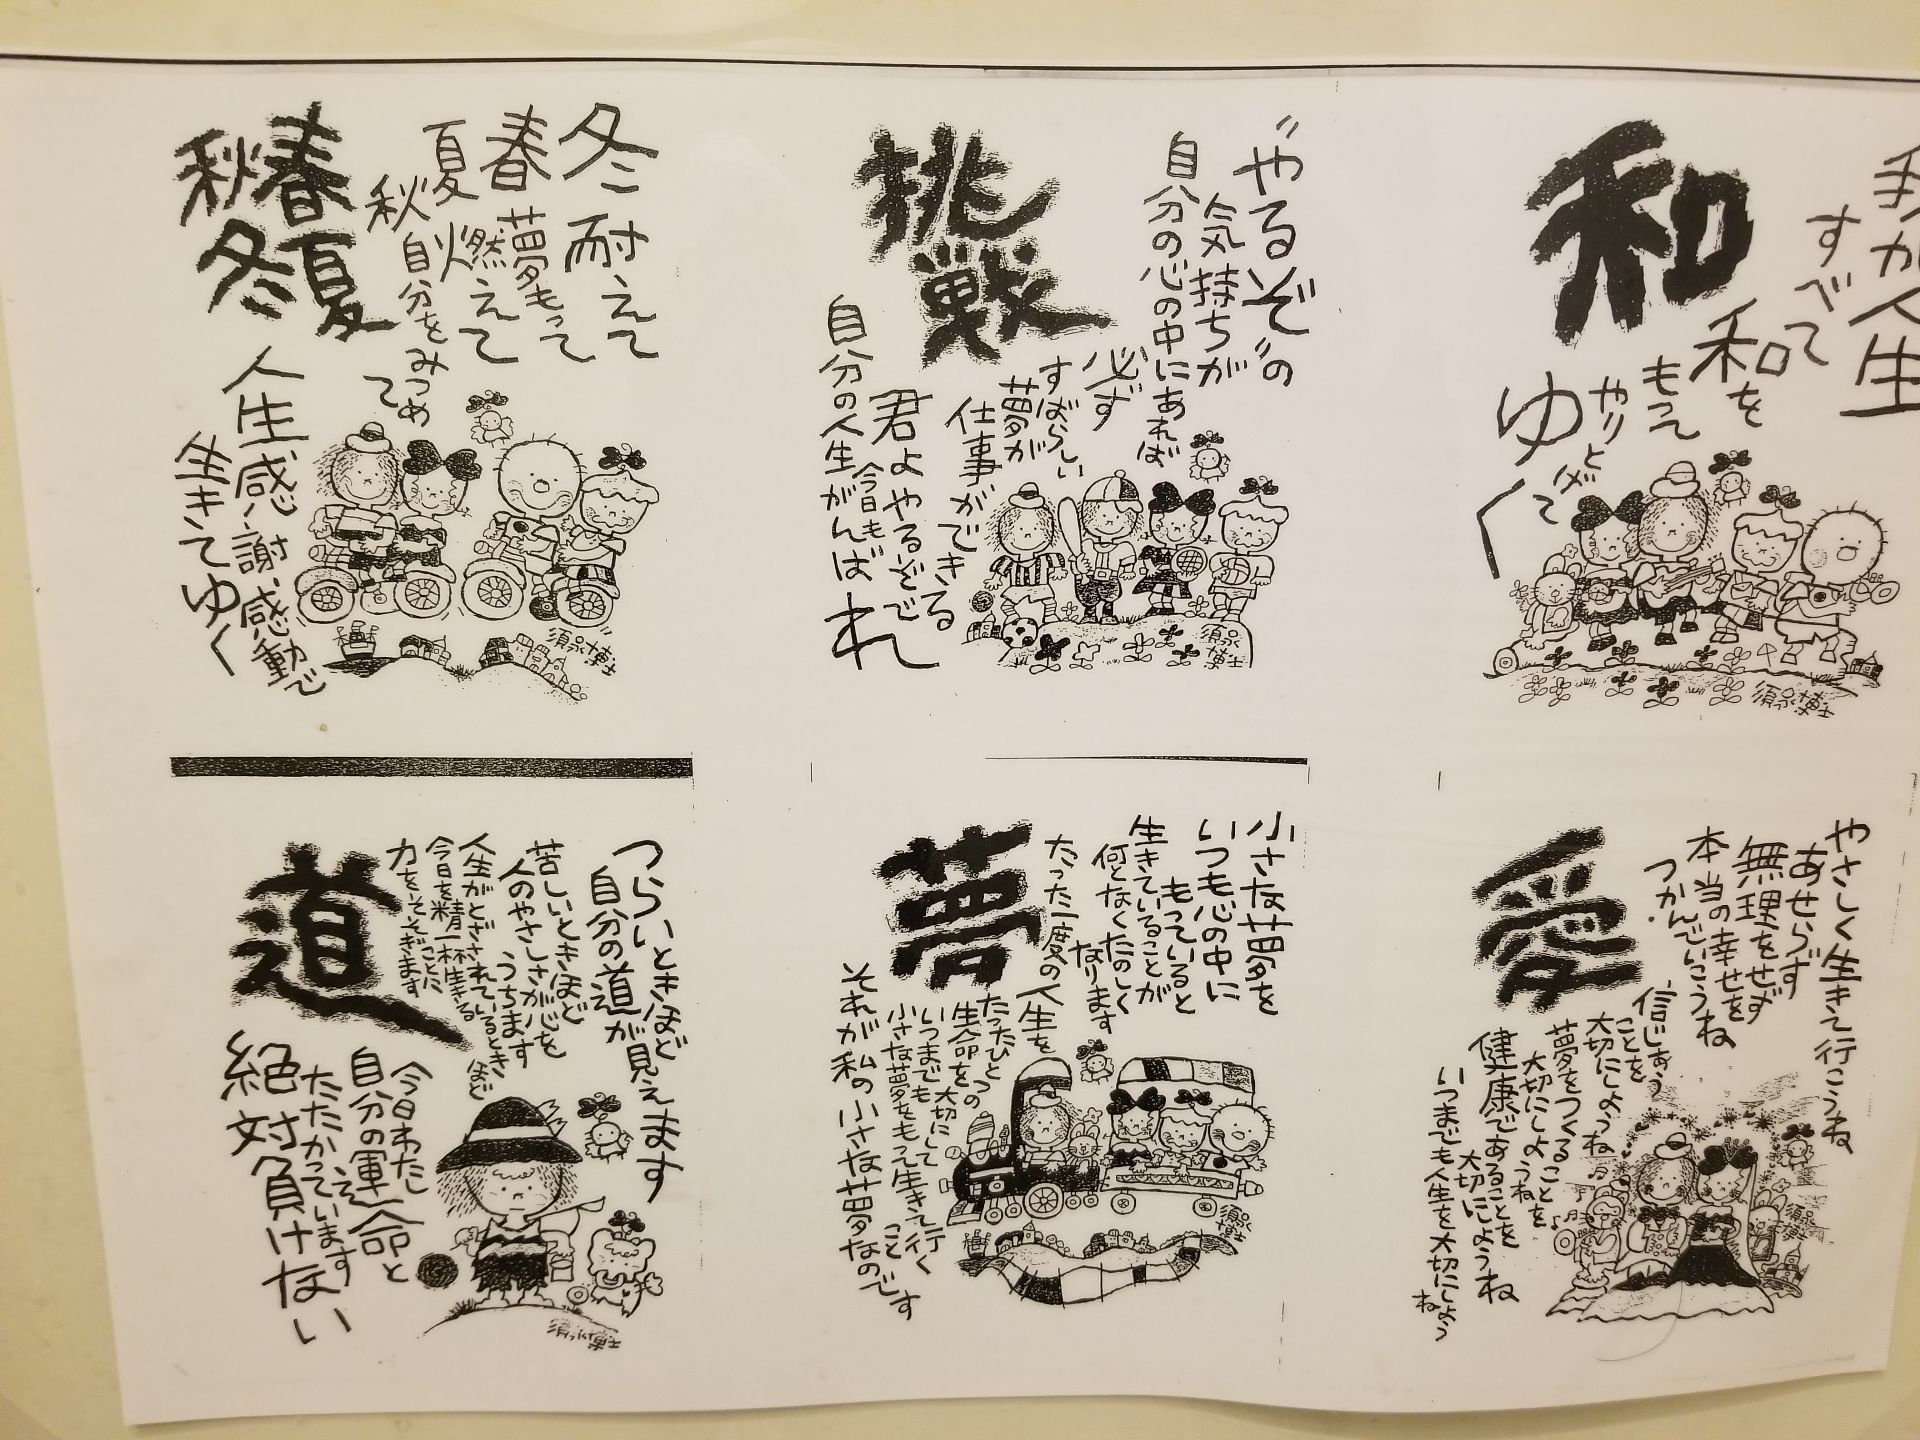 春夏
秋冬
冬耐えて
春夢もって
夏燃えて
秋自分をみつめ
て
人生感謝感動で
生きてゆく
須永博士
挑戦
"やるぞ"の
気持ちが
自分の心の中にあれば
必ず
すばらしい
夢が
仕事ができる
君よやるぞで
今日も
自分の人生がんばれ
須永博士
和
我が人生
すべて
和を
もって
やりとげて
ゆく
須永博士
道
つらいときほど
自分の道が見えます
苦しいときほど
人のやさしさが心を
うちます
人生がとざされているときほど
今日を精一杯生きる
ことに
力をそそぎます
今日わたし
自分の運命と
たたかっています
絶対負けない
須永博士
夢
小さな夢を
いつも心の中に
もっていると
生きていることが
何となくたのしく
なります
たった一度の人生を
たったひとつの
生命を大切にして
いつまでも
小さな夢をもって生きて行く
こと
それが私の小さな夢なのです
須永博士
愛
やさしく生きて行こうね
あせらず
無理をせず
本当の幸せを
つかんでいこうね
信じあう
ことを
大切にしようね
夢をつくることを
大切にしようね
健康であることを
大切にしようね
いつまでも人生を大切にしよう
ね
須永博士